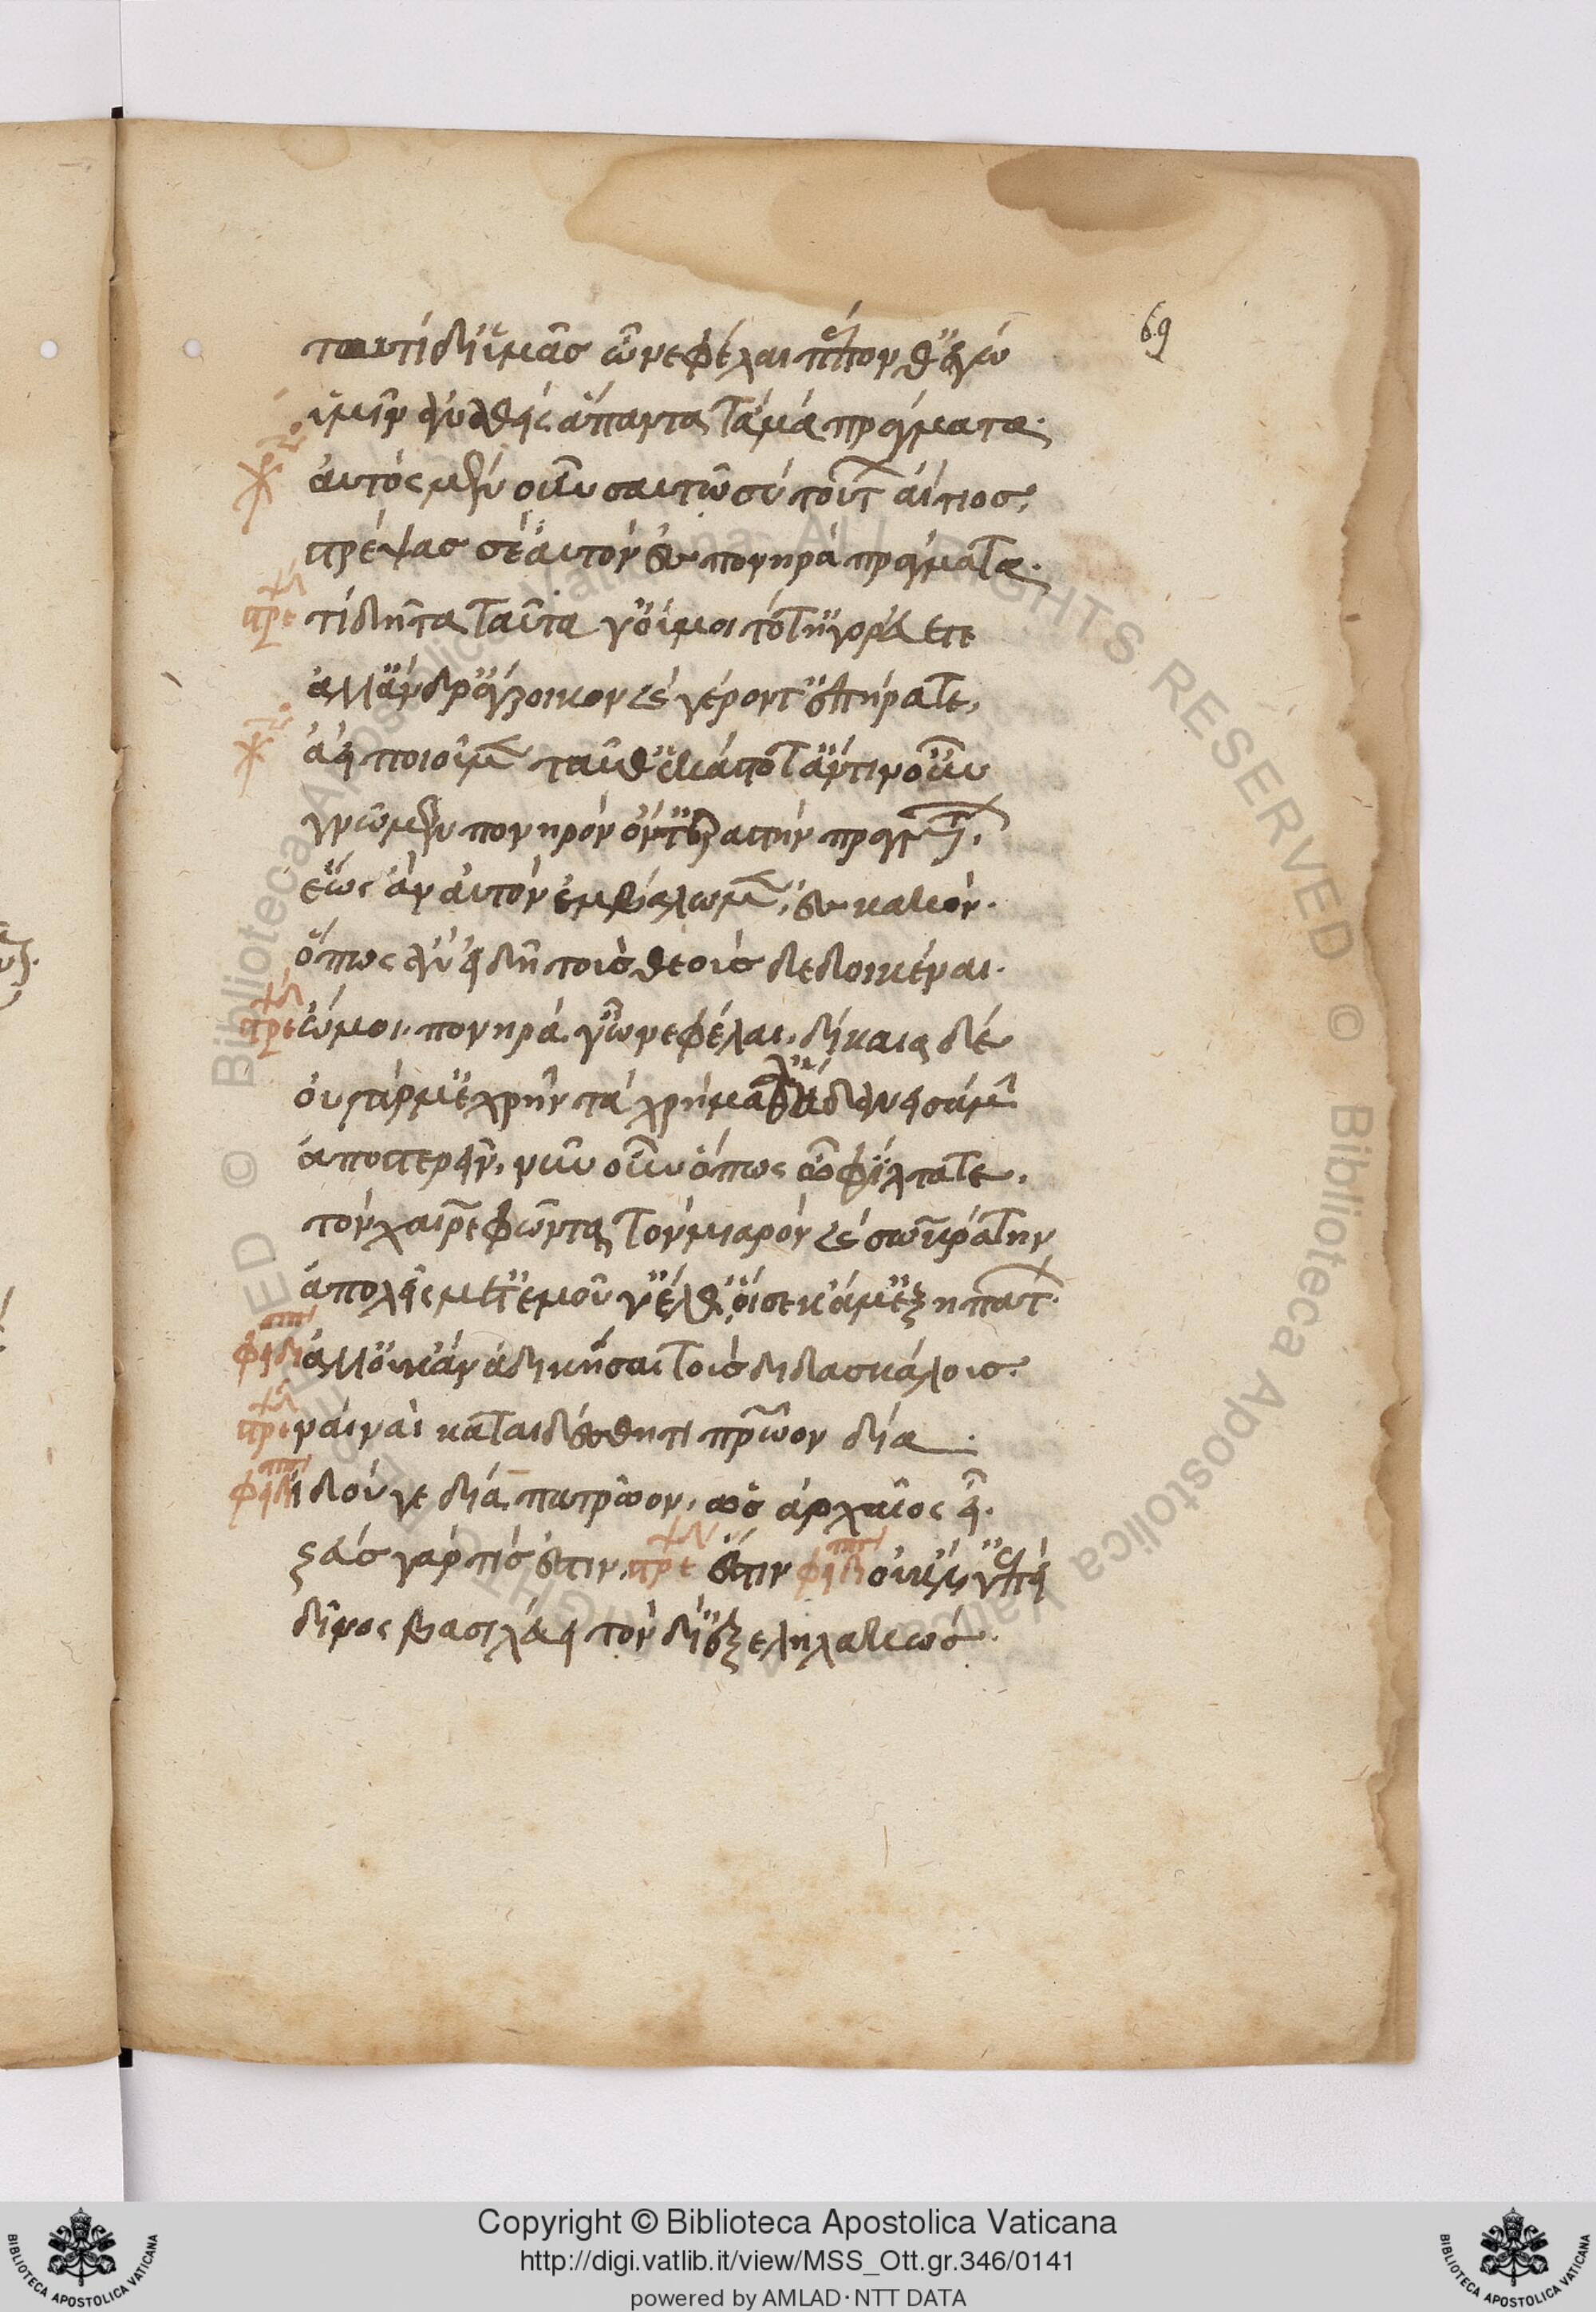 69
ταυτὶ δι' ὑμᾶς ὦ νεφέλαι πέπονθ' ἐγώ
ὑμῖν ἀναθεὶς ἅπαντα τἀμὰ πράγματα.
χο αὐτὸς μὲν οὖν σαυτῷ σὺ τούτ αἴτιος,
στρέψας σεαυτὸν εἰς πονηρὰ πράγματα.
στρε τί δῆτα ταῦτα γ' οὔ μοι τότ' ἠγορεύετε
ἀλλ' ἄνδρ' ἄγροικον καὶ γέροντ' ἐπήρατε,
χο ἀεὶ ποιοῦμ ταῦθ' ἑκάστοτ' ἄν τιν' οὖν
γνῶμεν πονηρὸν ὄντ' ἐραστὴν πραγμ.
ἕως ἂν αὐτὸν ἐμβάλωμ, εἰς κακὸν.
ὅπως ἂν εἰδῆ τοὺς θεοὺς δεδοικέναι.
στρε ὤμοι. πονηρά γ' ὦ νεφέλαι, δίκαια δέ
οὐ γάρ μ' ἐχρῆν τὰ χρήματα ἃ δανεισάμ
ἀποστερεῖν. νῦν οὖν ὅπως ὦ φίλτατε.
τὸν χαιρεφῶντα τὸν μιαρὸν καὶ σωκράτην
ἀπολεῖς μετ' ἐμοῦ γ' ἐλθ' οἵ σε κἄμ' ἐξηπάτ.
φειδιππ ἀλλ' οὐκ ἂν ἀδικήσαι τοὺς διδασκάλους.
στρε ναὶ ναὶ καταιδέσθητι πρῷον δία.
φειδιππ ἰδού γε δία πατρῷον, ὡς ἀρχαῖος εἶ.
ζεὺς γάρ τις ἔστιν. στρε ἔστιν φειδιππ οὐκ ἔστιν γ' ἐπεὶ
δῖνος βασιλεύει τὸν δί' ἐξεληλακώς.
Copyright © Biblioteca Apostolica Vaticana
http://digi.vatlib.it/view/MSS_Ott.gr.346/0141
powered by AMLAD·NTT DATA
BIBLIOTECA APOSTOLICA VATICANA
BIBLIOTECA APOSTOLICA VATICANA